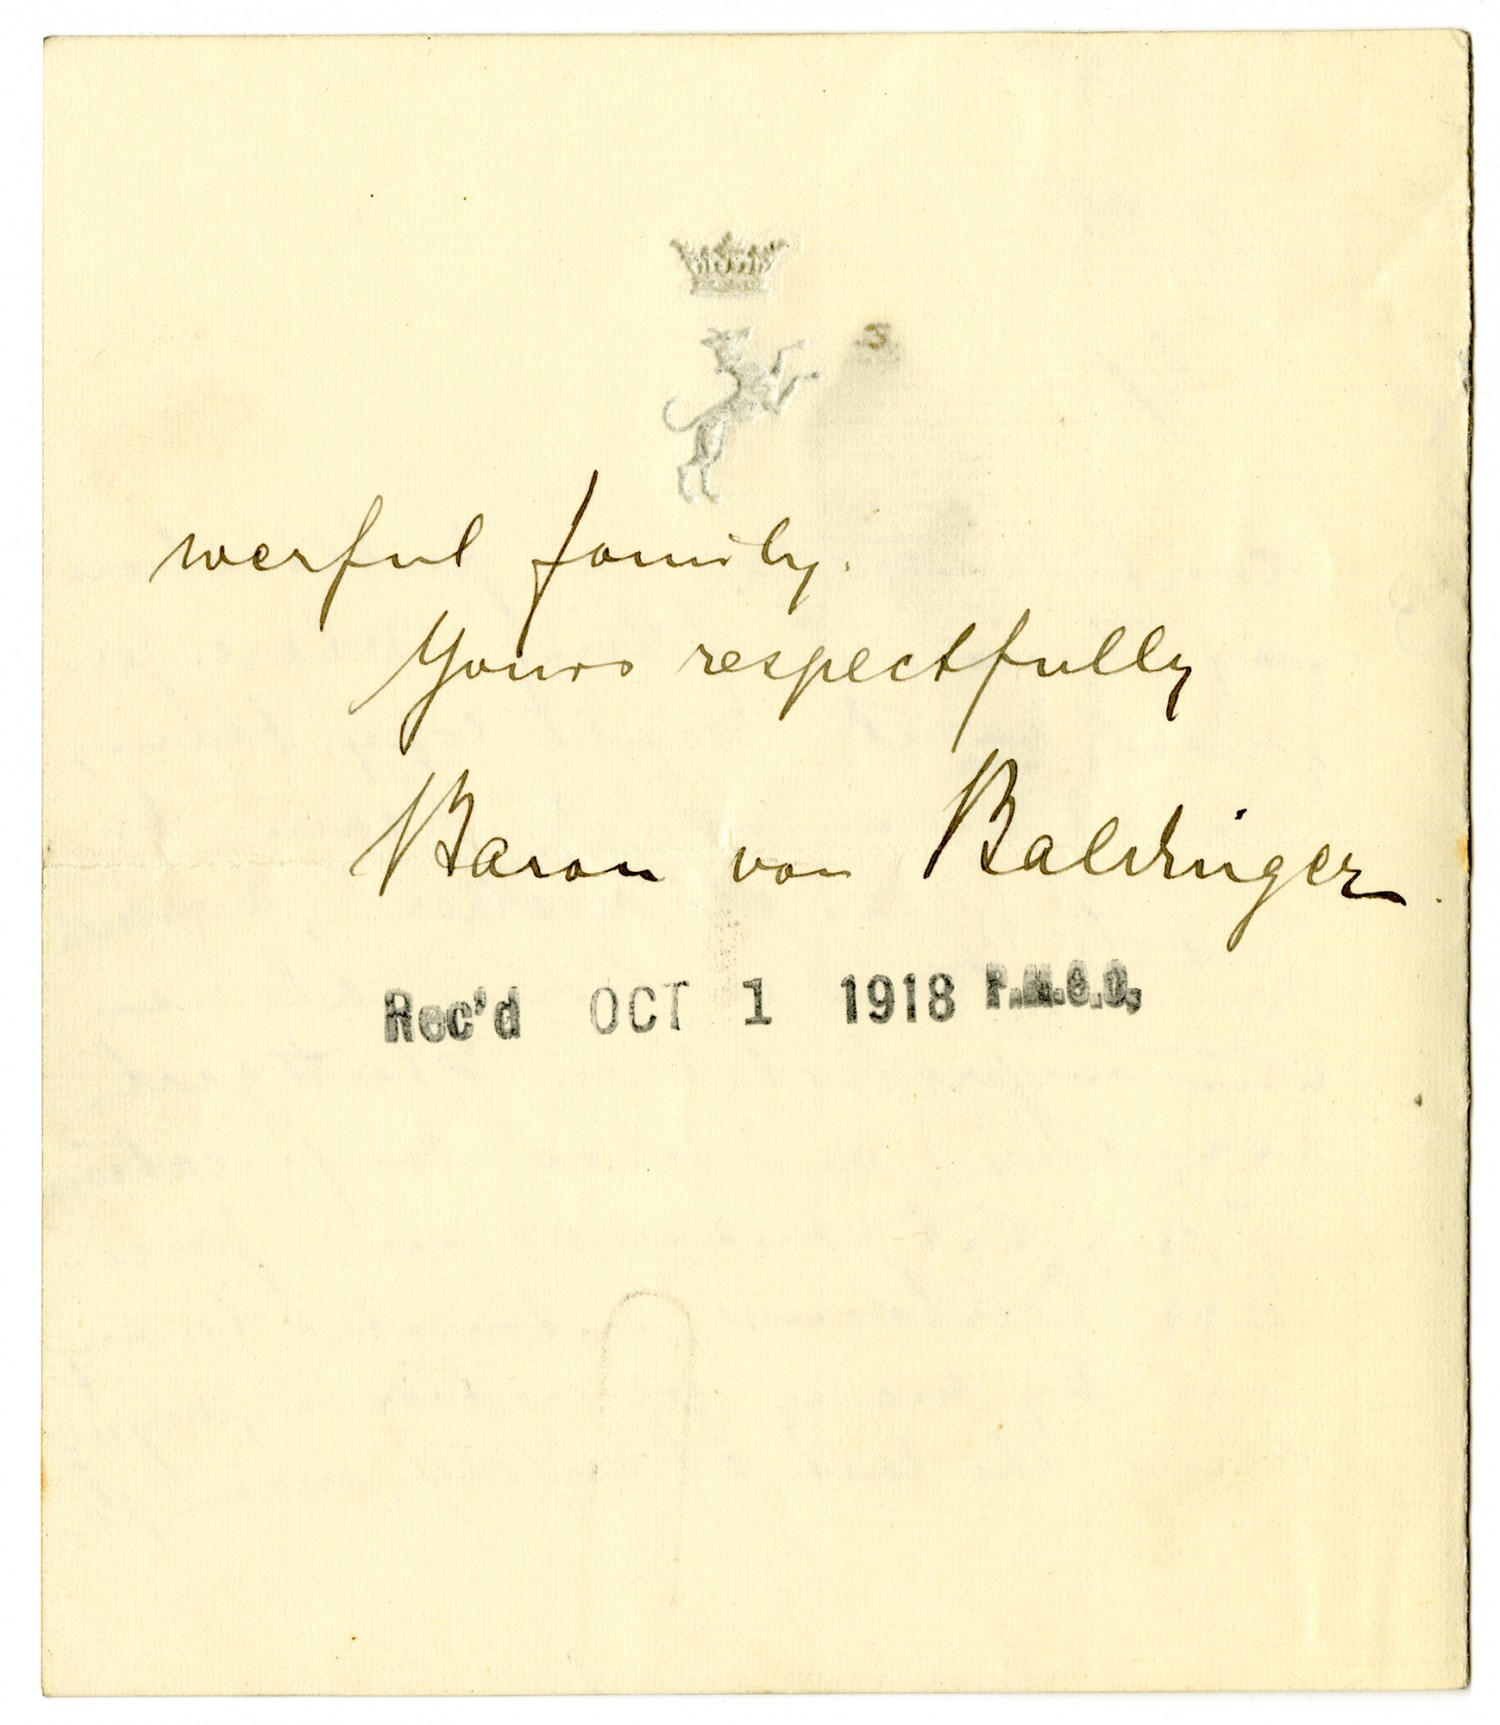 werful family.
Yours respectfully
Baron von Baldinger
Rec'd OCT 1 1918